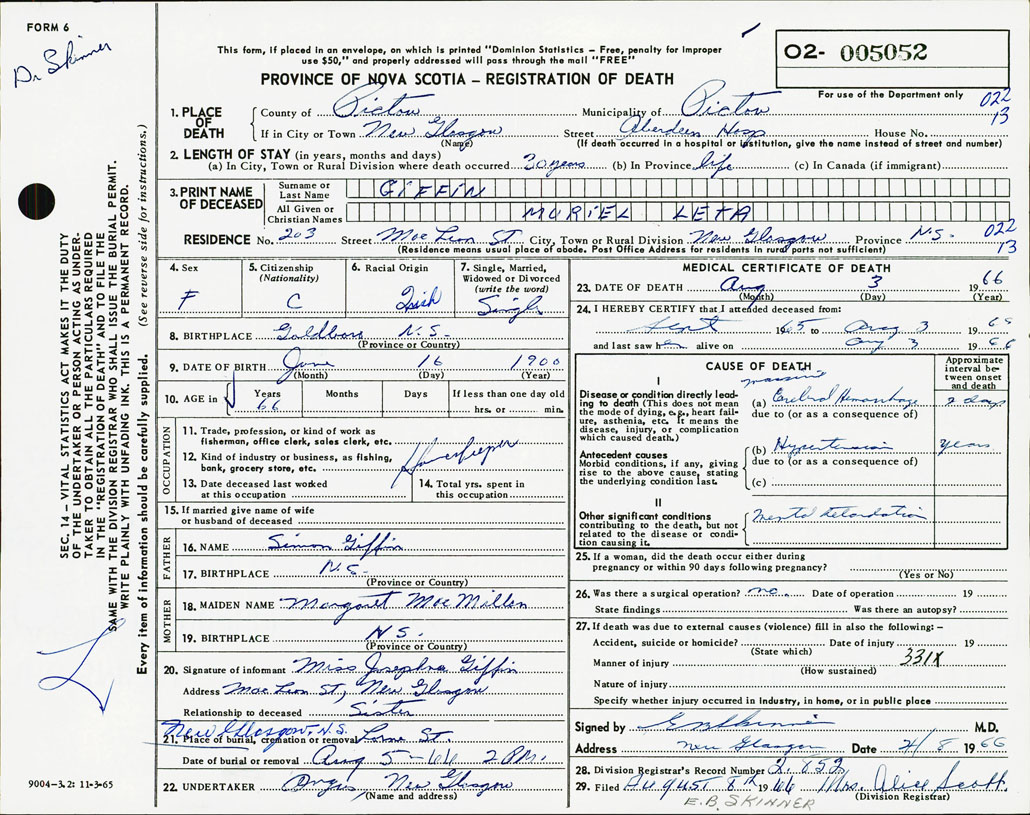 FORM 6
Dr Skinner
This form, if placed in an envelope, on which is printed "Dominion Statistics – Free, penalty for improper
use $50," and properly addressed will pass through the mail "FREE"
PROVINCE OF NOVA SCOTIA – REGISTRATION OF DEATH
O2- 005052
For use of the Department only
022
13
1. PLACE OF DEATH
County of Pictou Municipality of Pictou
If in City or Town New Glasgow Street Aberdeen Hosp House No.
(Name) (If death occurred in a hospital or institution, give the name instead of street and number)
2. LENGTH OF STAY (in years, months and days)
(a) In City, Town or Rural Division where death occurred 20 years (b) In Province life (c) In Canada (if immigrant)
3. PRINT NAME OF DECEASED
Surname or Last Name GIFFIN
All Given or Christian Names MURIEL LETA
RESIDENCE No. 203 Street MacLean St City, Town or Rural Division New Glasgow Province N.S.
(Residence means usual place of abode. Post Office Address for residents in rural parts not sufficient)
022
13
4. Sex
F
5. Citizenship
(Nationality)
C
6. Racial Origin
Irish
7. Single, Married,
Widowed or Divorced
(write the word)
Single
8. BIRTHPLACE Goldboro N.S.
(Province or Country)
9. DATE OF BIRTH June 16 1900
(Month) (Day) (Year)
10. AGE in Years Months Days If less than one day old
66 hrs. or min.
OCCUPATION
11. Trade, profession, or kind of work as
fisherman, office clerk, sales clerk, etc.
12. Kind of industry or business, as fishing,
bank, grocery store, etc. Housekeeper
13. Date deceased last worked
at this occupation
14. Total yrs. spent in
this occupation
15. If married give name of wife
or husband of deceased
FATHER
16. NAME Simon Giffin
17. BIRTHPLACE N.S.
(Province or Country)
MOTHER
18. MAIDEN NAME Margaret MacMillan
19. BIRTHPLACE N S.
(Province or Country)
20. Signature of informant Miss Josephine Giffin
Address MacLean St, New Glasgow
Relationship to deceased Sister
New Glasgow, N.S.
21. Place of burial, cremation or removal Lorne St.
Date of burial or removal Aug 5-66 2 P.M.
22. UNDERTAKER Angus New Glasgow
(Name and address)
MEDICAL CERTIFICATE OF DEATH
23. DATE OF DEATH Aug 3 1966
(Month) (Day) (Year)
24. I HEREBY CERTIFY that I attended deceased from:
Sept 1965 to Aug 3 1966
and last saw her alive on Aug 3 1966
CAUSE OF DEATH
Approximate interval between onset and death
I
Disease or condition directly leading to death (This does not mean
the mode of dying, e.g., heart failure, asthenia, etc. It means the
disease, injury, or complication
which caused death.)
massive
(a) Cerebral Hemorrhage 2 days
due to (or as a consequence of)
Antecedent causes
Morbid conditions, if any, giving
rise to the above cause, stating
the underlying condition last.
(b) Hypertension years
due to (or as a consequence of)
(c)
II
Other significant conditions
contributing to the death, but not
related to the disease or condition causing it.
Mental Retardation
25. If a woman, did the death occur either during
pregnancy or within 90 days following pregnancy?
(Yes or No)
26. Was there a surgical operation? no. Date of operation 19
State findings Was there an autopsy?
27. If death was due to external causes (violence) fill in also the following: –
Accident, suicide or homicide? Date of injury 19
(State which)
Manner of injury 331X
(How sustained)
Nature of injury
Specify whether injury occurred in industry, in home, or in public place
Signed by E B Skinner M.D.
Address New Glasgow Date 4/8 1966
28. Division Registrar's Record Number 2,852
29. Filed AUGUST 8th 1966 Mrs. Alice Scott.
(Division Registrar)
E.B. SKINNER
SEC. 14 – VITAL STATISTICS ACT MAKES IT THE DUTY
OF THE UNDERTAKER OR PERSON ACTING AS UNDER-
TAKER TO OBTAIN ALL THE PARTICULARS REQUIRED
IN THE "REGISTRATION OF DEATH" AND TO FILE THE
SAME WITH THE DIVISION REGISTRAR WHO SHALL ISSUE THE BURIAL PERMIT.
WRITE PLAINLY WITH UNFADING INK. THIS IS A PERMANENT RECORD.
Every item of information should be carefully supplied. (See reverse side for instructions.)
9004–3.2: 11-3-65